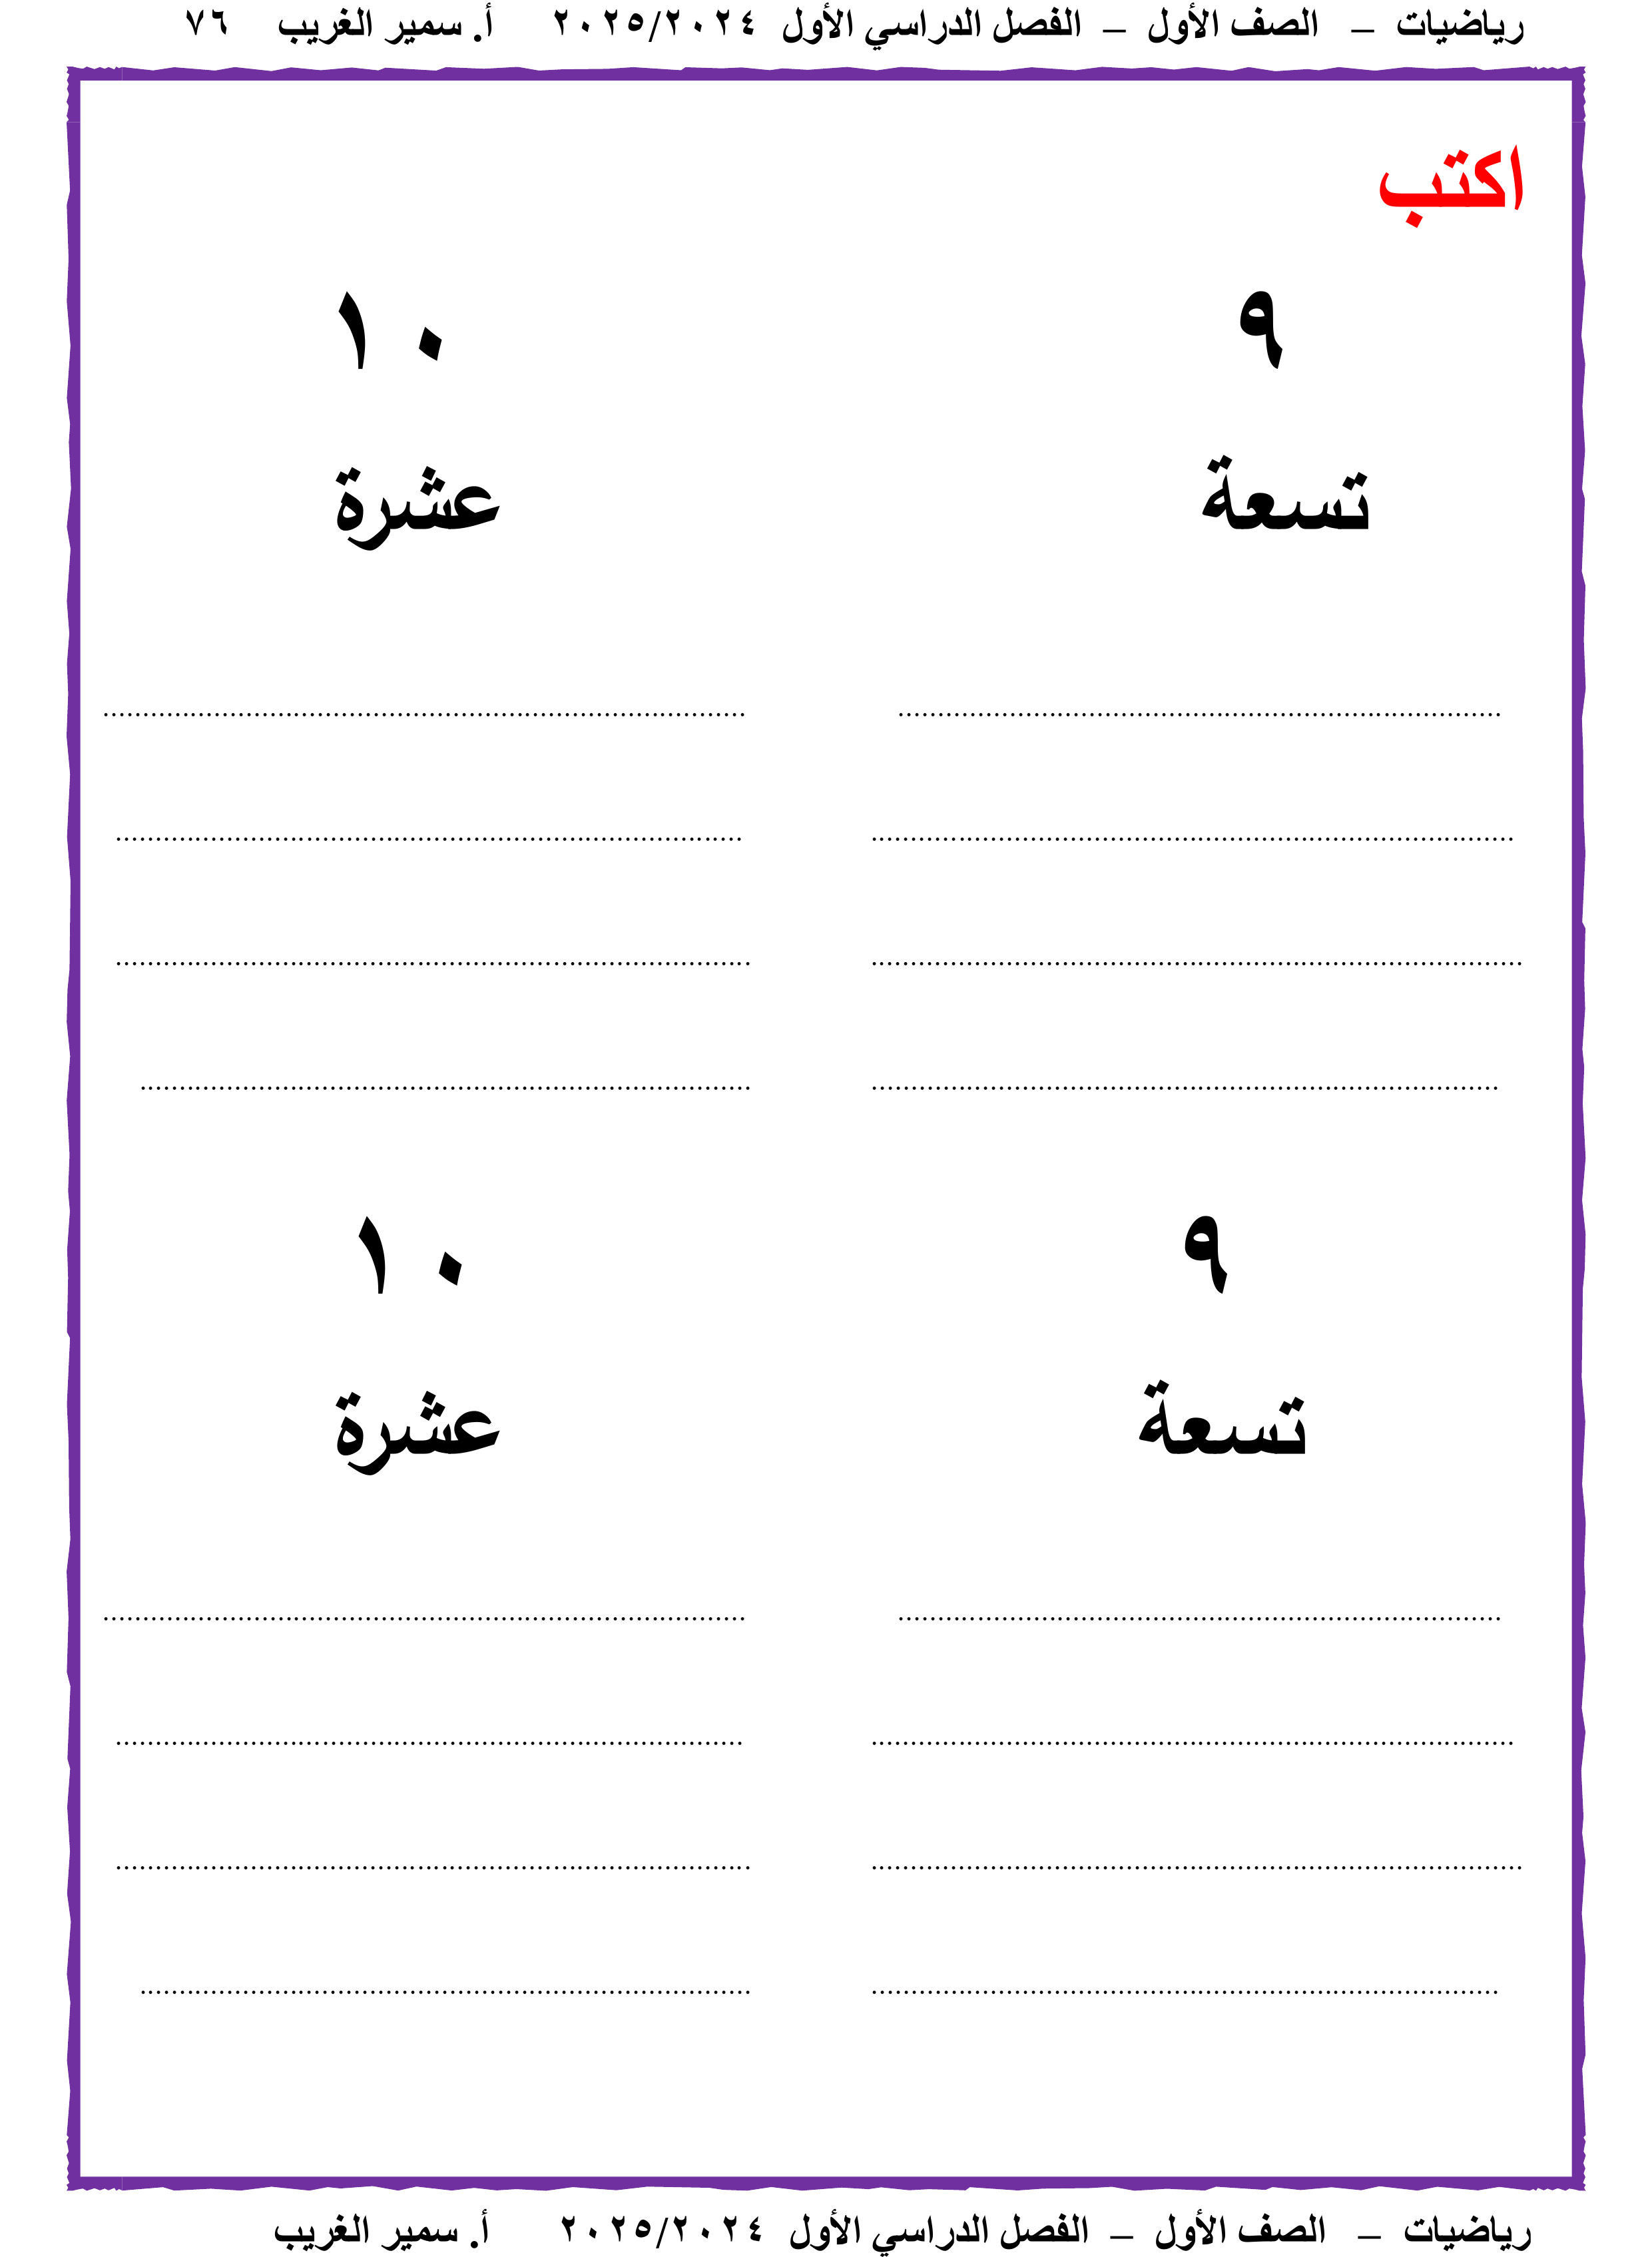 رياضيات – الصف الأول – الفصل الدراسي الأول ٢٠٢٥/٢٠٢٤ أ. سمير الغريب ٧٦
اكتب
٩ ١٠
تسعة عشرة
................................................ ................................................
................................................ ................................................
................................................ ................................................
................................................ ................................................
٩ ١٠
تسعة عشرة
................................................ ................................................
................................................ ................................................
................................................ ................................................
................................................ ................................................
رياضيات – الصف الأول – الفصل الدراسي الأول ٢٠٢٥/٢٠٢٤ أ. سمير الغريب